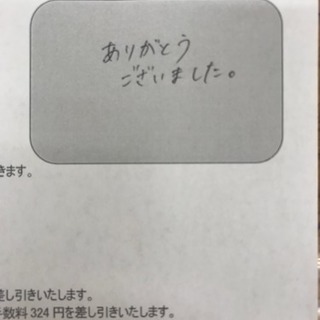 ありがとう
ございました。
きます。
差し引きいたします。
手数料 324 円を差し引きいたします。